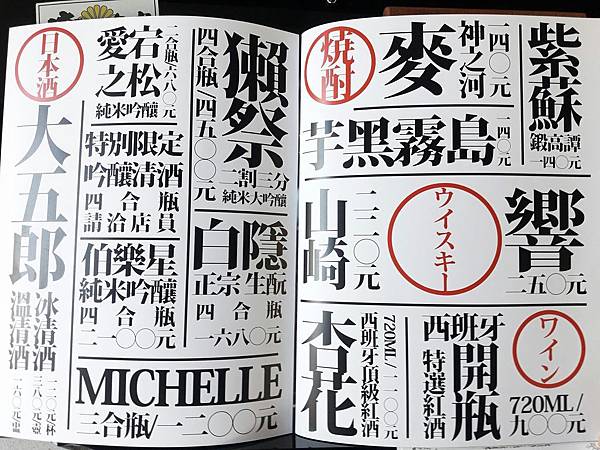 紫蘇
鍛高譚
一四〇元
神之河
一四〇元
麥
燒酎
芋黑霧島
一四〇元
響
二五〇元
ウイスキー
山崎
二二〇元
ワイン
720ML/
九〇〇元
西班牙
特選紅酒
開瓶
720ML/一一〇〇元
西班牙頂級紅酒
杏花
獺祭
二割三分
純米大吟釀
四合瓶/四五〇〇元
白隱
正宗生酛
四合瓶
一六八〇元
宕松
愛之
二合瓶六八〇元
純米吟釀
特別限定
吟釀清酒
四合瓶
請洽店員
伯樂星
純米吟釀
四合瓶
二一〇〇元
MICHELLE
三合瓶/一二〇〇元
日本酒
大五郎
冰清酒
溫清酒